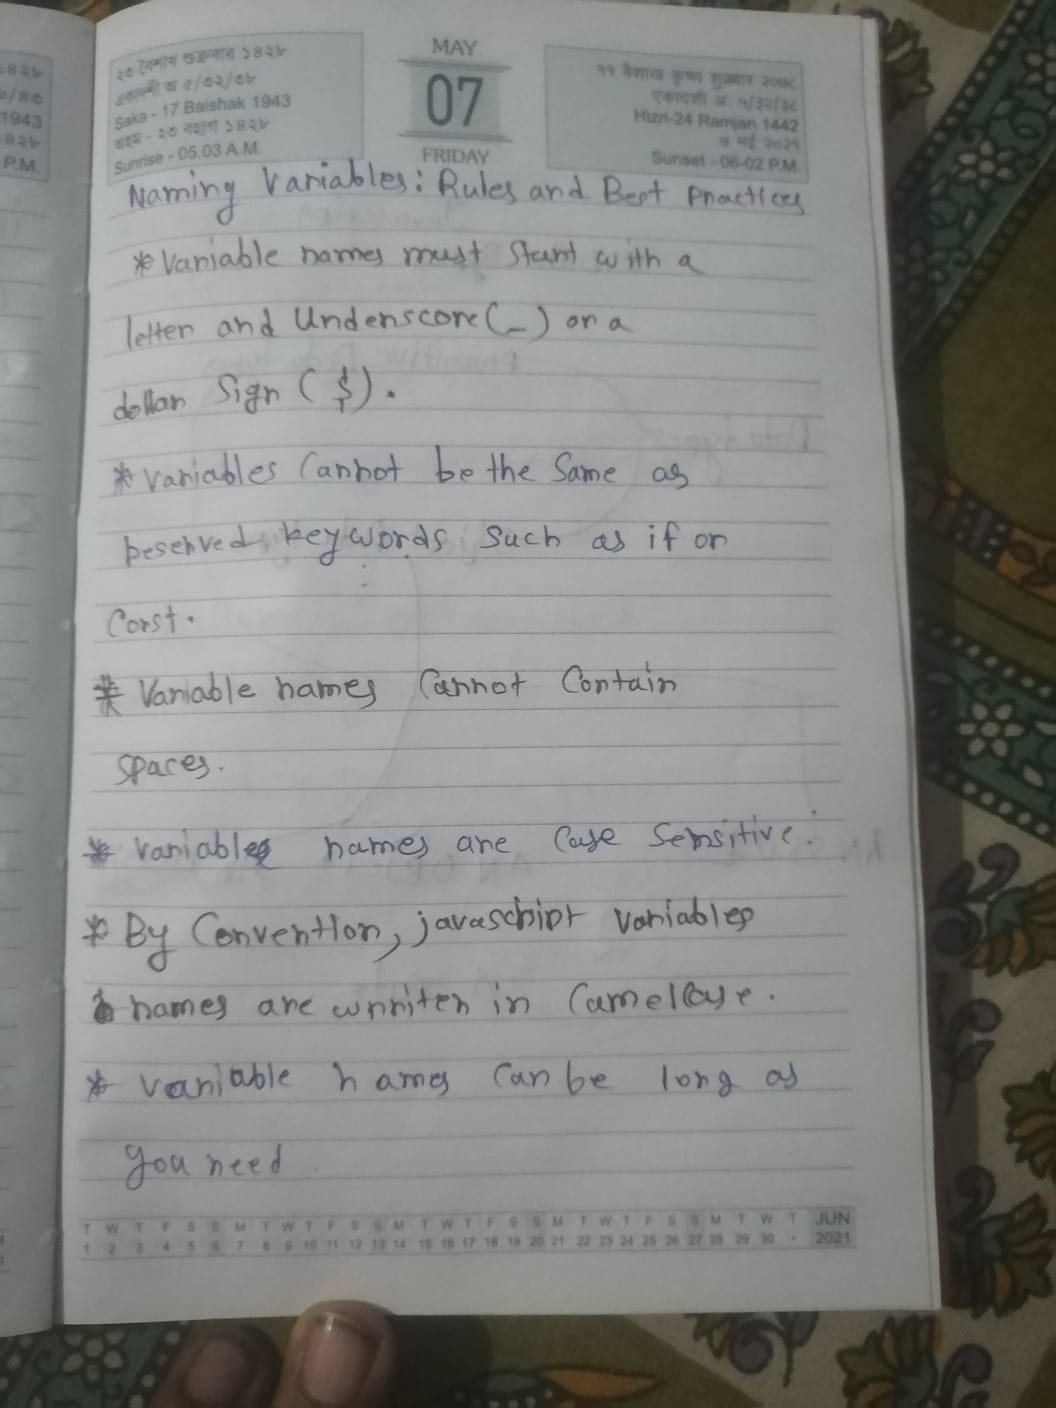 ২৩ বৈশাখ শুক্রবার ১৪২৮
Saka - 17 Baishak 1943
Sunrise - 05.03 A.M.
MAY
07
FRIDAY
११ वैशाख कृष्ण शुक्रवार २०७८
एकादशी अ: ५/३२/३८
Hizri-24 Ramjan 1442
७ मई २०२१
Sunset - 06-02 P.M.
1943
P.M.
Naming Variables: Rules and Best Practices
* Variable names must Start with a
letter and Underscore (_) or a
dollar Sign ($).
* Variables Cannot be the Same as
reserved keywords Such as if or
Const.
* Variable names Cannot Contain
spaces.
* Variables names are Case Sensitive.
* By Convention, javascript variables
names are wrriten in CamelCase.
* Variable names Can be long as
you need
T W T F S S M T W T F S S M T W T F S S M T W T F S S M T W T JUN
1 2 3 4 5 6 7 8 9 10 11 12 13 14 15 16 17 18 19 20 21 22 23 24 25 26 27 28 29 30 • 2021